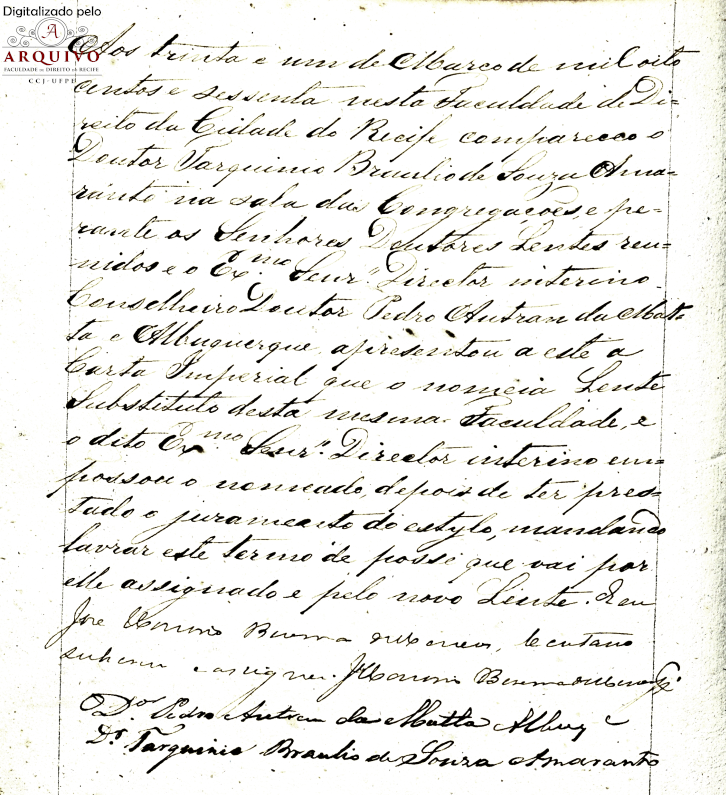 Digitalizado pelo
A
ARQUIVO
FACULDADE DE DIREITO DO RECIFE
CCJ-UFPE
Aos trinta e um de Março de mil oito
centos e sessenta nesta Faculdade de Di=
reito da Cidade do Recife compareceo o
Doutor Tarquinio Braulio de Souza Ama=
ranto na sala das Congregações, e pe=
rante os Senhores Doutores Lentes reu=
nidos e o Ex.mo Senr.. Director interino
Conselheiro Doutor Pedro Autran da Mat=
ta e Albuquerque, apresentou a este a
Carta Imperial que o nomeia Lente
Substituto desta mesma Faculdade, e
o dito Ex.mo Senr.. Director interino em=
possou o nomeado, depois de ter pres=
tado o juramento do estylo, mandando
lavrar este termo de posse que vai por
elle assignado e pelo novo Lente. Eu
José Honorio Bezerra de Menezes, Secretario
subscrevi e assignei. J Honorio Bezerra de Menezes
Dor Pedro Autran da Matta Albuqe
Dr. Tarquinio Braulio de Souza Amaranto